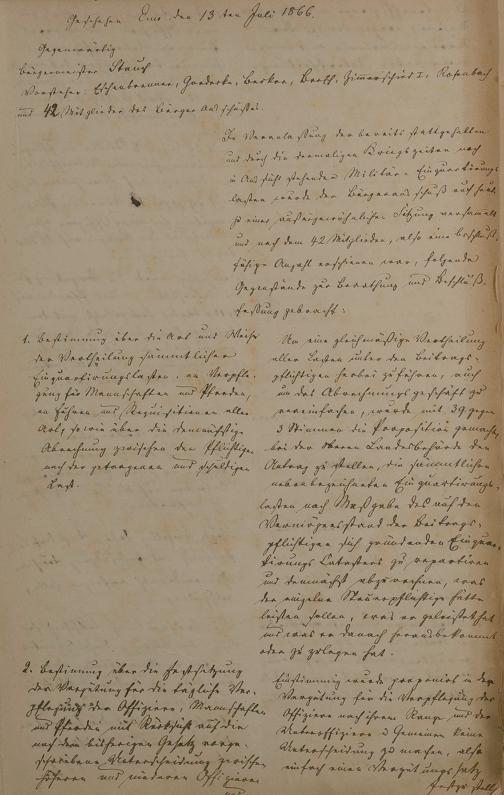 Geschehen Ems den 13ten Juli 1866.
Gegenwärtig
Bürgermeister Stauch
Vorsteher: Eschenbrenner, Goedecke, Becker, Barth, Zimmerschied I, Rosenbach
und 42 Mitglieder des Bürger Ausschusses.
In Veranlassung der bereits stattgehabten
und durch die dermaligen Kriegszeiten noch
in Aussicht stehenden Militär-Einquartirungs
lasten wurde der Bürgerausschuß auf heute
zu einer außergewöhnlichen Sitzung versammelt
und nach dem 42 Mitglieder, also eine beschluß
fähige Anzahl erschienen war, folgende
Gegenstände zur Berathung und Beschluß-
fassung gebracht:
1. Bestimmung über die Art und Weise
der Vertheilung sämmtlicher
Einquartirungslasten, an Verpfle-
gung für Mannschaften und Pferden,
an Fuhren und Requisitionen aller
Art, sowie über die demnächstige
Abrechnung zwischen den Pflichtigen
nach der getragenen und schuldigen
Last.
Um eine gleichmäßige Vertheilung
aller Lasten unter den Beitrags-
pflichtigen herbei zu führen, auch
um das Abrechnungsgeschäft zu
vereinfachen, wurde mit 39 gegen
3 Stimmen die Proposition gemacht,
bei der oberen Landesbehörde den
Antrag zu stellen, die sämmtlichen
nebenbezeichneten Einquartirungs-
lasten nach Maßgabe des auf den
Vermögensstand der Beitrags-
pflichtigen sich gründenden Einquar-
tirungs Catasters zu repartiren
und demnächst abzurechnen, was
der einzelne Steuerpflichtige hätte
leisten sollen, was er geleistet hat
und was er danach herausbekommt
oder zu zulegen hat.
2. Bestimmung über die Festsetzung
der Vergütung für die tägliche Ver-
pflegung der Offiziere, Mannschaften
und Pferden mit Rücksicht auf die
nach dem bisherigen Gesetz vorge-
schriebene Unterscheidung zwischen
höheren und niederen Offizieren
und
Einstimmig wurde proponirt in der
Vergütung für die Verpflegung der
Offiziere nach ihrem Range und der
Unteroffiziere & Gemeinen keine
Unterscheidung zu machen, also
einfach einen Vergütungssatz